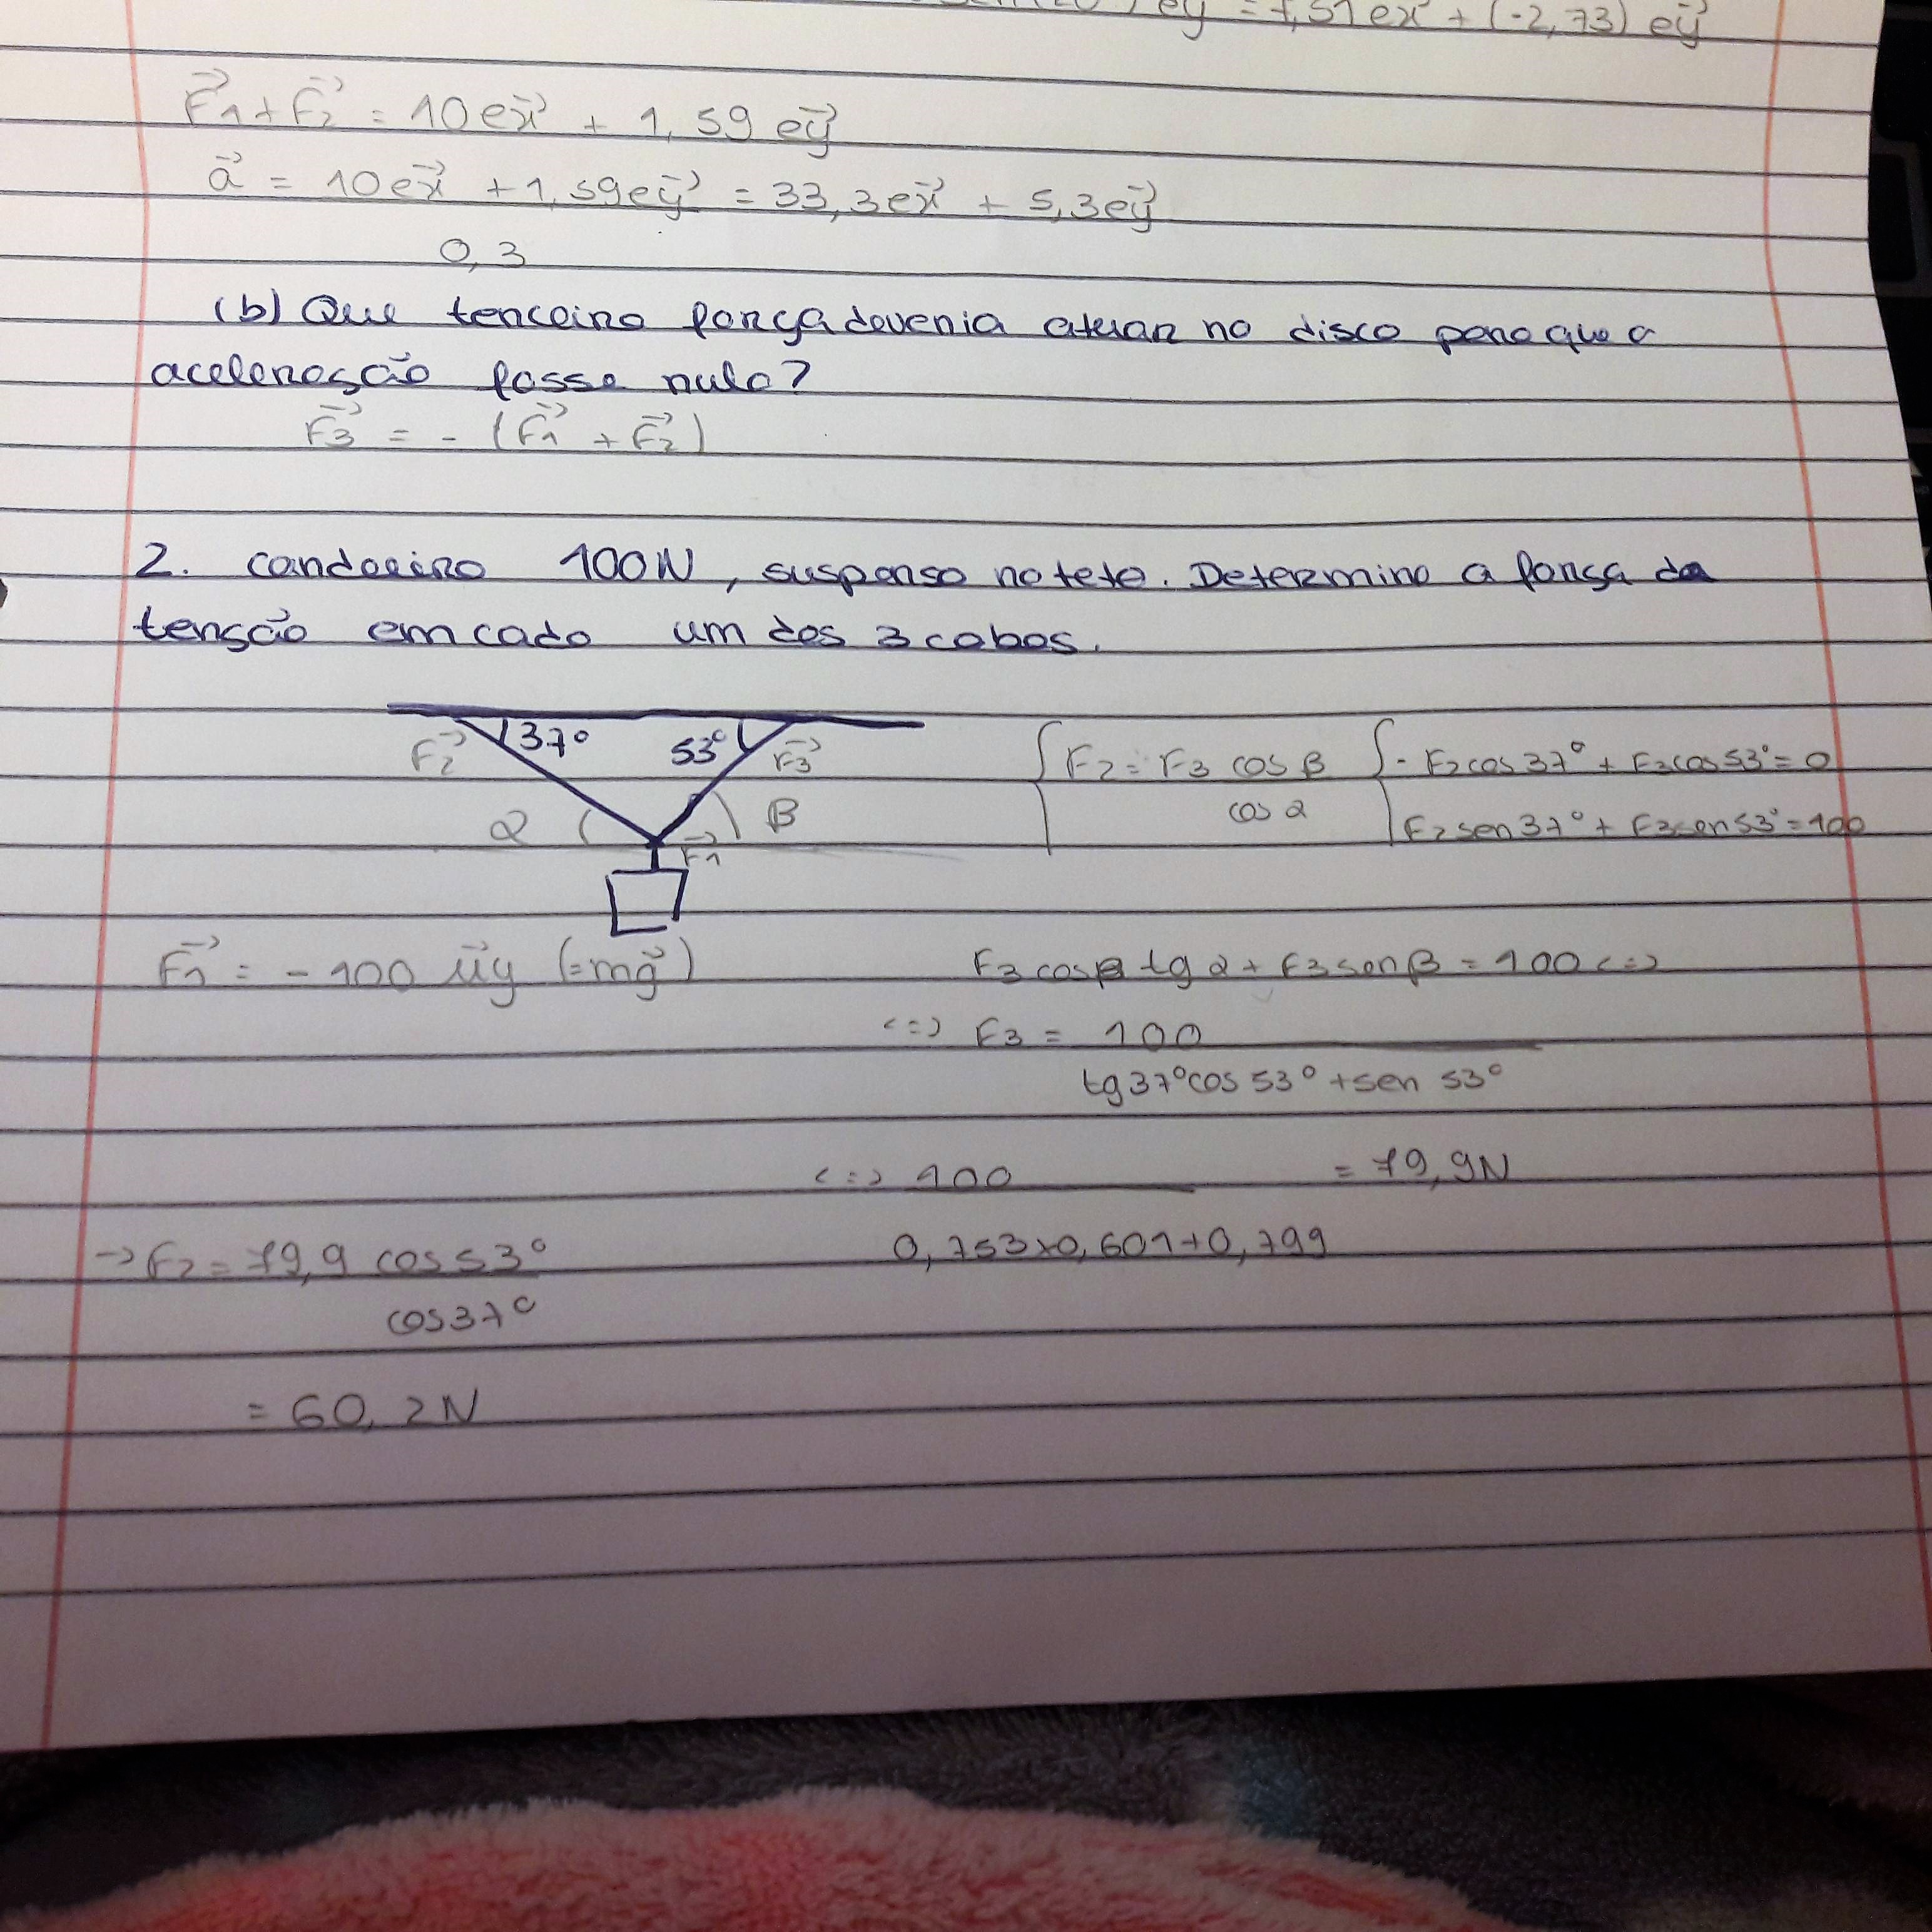 ey = 7,51 ex + (-2,73) ey
F1 + F2 = 10 ex + 1,59 ey
a = 10 ex + 1,59 ey = 33,3 ex + 5,3 ey
0,3
(b) Que terceira força deveria atuar no disco para que a
aceleração fosse nula?
F3 = - (F1 + F2)
2. candeeiro 100N, suspenso no teto. Determine a força da
tensão em cada um dos 3 cabos.
37° 53°
F2 F3
α β
F1
F2 = F3 cos β
cos α
- F2 cos 37° + F3 cos 53° = 0
F2 sen 37° + F3 sen 53° = 100
F1 = - 100 uy (= mg)
F3 cos β tg α + F3 sen β = 100 <=>
<=> F3 = 100
tg 37° cos 53° + sen 53°
<=> 100 = 79,9N
0,753 x 0,601 + 0,799
-> F2 = 79,9 cos 53°
cos 37°
= 60,2N